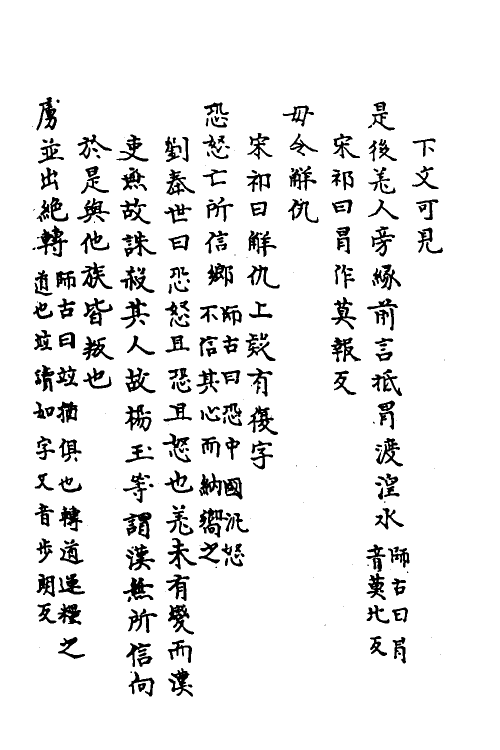 下文可見
是後羌人旁緣前言抵冒渡湟水師古曰冒音莫北反
宋祁曰冒作莫報反
毋令解仇
宋祁曰解仇上疑有復字
恐怒亡所信鄉師古曰恐中國汎怒不信其心而納嚮之
劉奉世曰恐怒且恐且怒也羌未有變而漢
吏無故誅殺其人故楊玉等謂漢無所信向
於是與他族皆叛也
虜並出絕轉師古曰竝猶俱也轉道運糧之道也竝讀如字又音步朗反